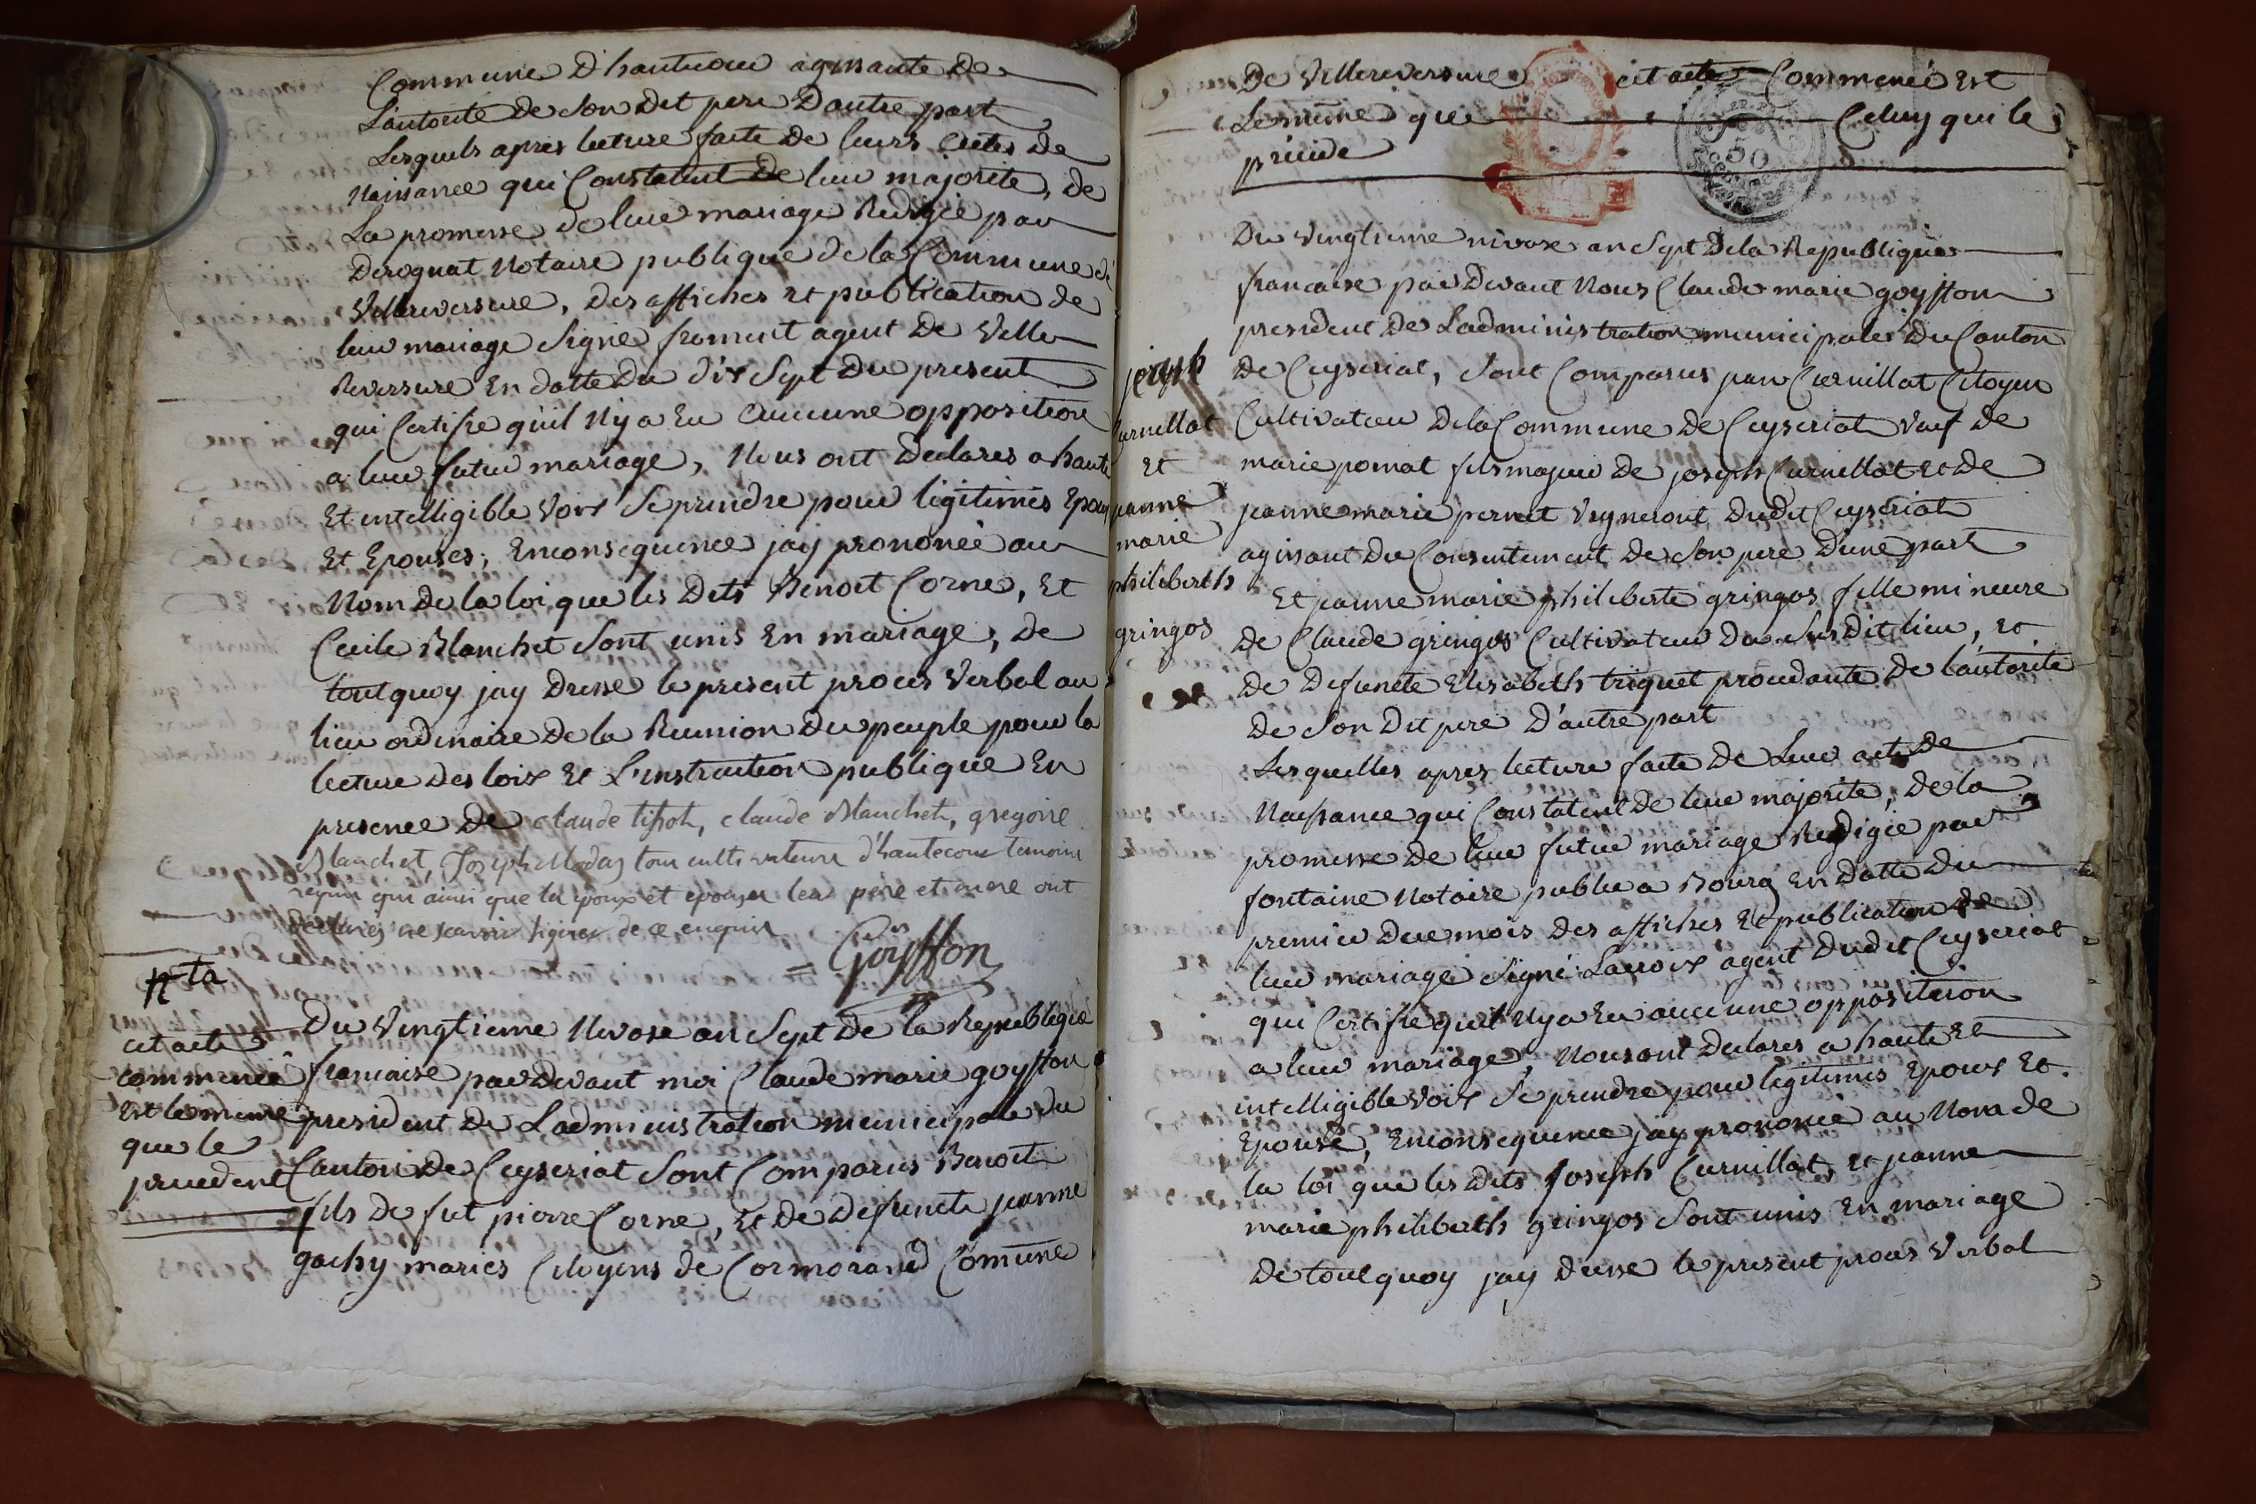 Commune D'hautecour agissante de
L'autorité de Son Dit pere D'autre part
Lesquels apres lecture faite De leurs Actes de
Naissance qui Constatent De leur majorité, de
La promesse de leur mariage Redigée par
Derognat Notaire publique de la Commune de
Villereversure, Des affiches et publication de
leur mariage Signé froment agent De Ville
Reversure En datte Du dix Sept Du present
qui Certifie qu'il N'y a Eu aucune opposition
a leur futur mariage, Nous ont Declarés a haute
Et intelligible Voix Se prendre pour légitimes Epoux
Et Epouses; Enconsequence jay prononcé au
Nom de la loi que les Dits Benoit Corne, Et
Cecile Blanchet Sont unis En mariage, de
tout quoy jay Dressé le present procès Verbal au
lieu ordinaire de la Reunion Du peuple pour la
lecture des loix Et L'instruction publique En
presence de claude tissot, claude Blanchet, gregoire
Blanchet, Joseph Modas tous cultivateurs d'hautecour temoins
requis qui ainsi que les epoux et epouses leur pere et mere ont
declarés ne scavoir signer de ce enquis
= Goÿffon
Nta
cet acte
commencé
Est le meme
que le
precedent
Du Vingtieme Nivose an Sept de la Republique
francaise par Devant moi Claude marie goyffon
president De L'administration municipale du
Canton De Ceyseriat Sont Comparus Benoit
fils De fut pierre Corne, Et De Defuncte jeanne
gachy mariés Citoyens de Cormorand Comune
De Villereversure cet acte Commencé Est
Le même que Celuy qui le
précède
joseph
Curnillat
et
jeanne
marie
philiberth
gringos
Du Vingtieme nivose an Sept De la Republique
francaise par Devant Nous Claude marie goyffon
president De L'administration municipale Du Canton
De Ceyseriat, Sont Comparus Curnillat Citoyen
Cultivateur De la Commune de Ceyseriat Vuf de
marie pomat fils majeur de joseph Curnillat et de
jeanne marie pernet Vigneront Dudit Ceyseriat
agissant Du Consentement De Son pere D'une part
Et jeanne marie philiberte gringos fille mineure
de Claude gringos Cultivateur Du Sus Dit lieu, et
De Defuncte Elisabeth triquet procedante De l'autorité
De Son Dit pere D'autre part
Lesquelles apres lecture faite De Leur acte De
Naissance qui Constatent de leur majorité, De la
promesse De leur futur mariage Redigée par
fontaine Notaire public a Bourg En datte Du
premier Du mois Des affiches Et publication de
leur mariage Signé Lacroix agent Dudit Ceyseriat
qui Certifie quil N'y a Eu aucune opposition
a leur mariage, Nous ont Declarés a haute Et
intelligible Voix Se prendre pour legitimes Epoux Et
Epouse, Enconsequence jay prononcé au Nom de
la loi que les Dits Joseph Curnillat Et jeanne
marie philiberth gringos Sont unis En mariage
De toutquoy jay Dressé le present procés Verbal